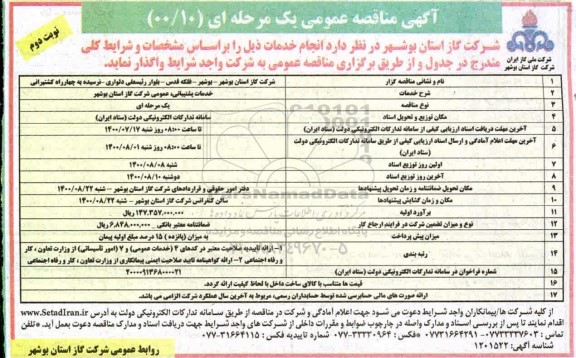 آگهی مناقصه عمومی یک مرحله ای (۰۰/۱۰)
نوبت دوم
شرکت ملی گاز ایران
شرکت گاز استان بوشهر
شرکت گاز استان بوشهر در نظر دارد انجام خدمات ذیل را براساس مشخصات و شرایط کلی
مندرج در جدول و از طریق برگزاری مناقصه عمومی به شرکت واجد شرایط واگذار نماید.
۱ نام و نشانی مناقصه گزار شرکت گاز استان بوشهر – بوشهر – فلکه قدس – بلوار رئیسعلی دلواری – نرسیده به چهارراه کشتیرانی
۲ شرح خدمات خدمات پشتیبانی، عمومی شرکت گاز استان بوشهر
۳ نوع مناقصه یک مرحله ای
۴ مکان توزیع و تحویل اسناد سامانه تدارکات الکترونیکی دولت (ستاد ایران)
۵ آخرین مهلت دریافت اسناد ارزیابی کیفی از سامانه تدارکات الکترونیکی دولت (ستاد ایران) تا ساعت ۰۸:۰۰ روز شنبه ۱۴۰۰/۰۷/۱۷
۶ آخرین مهلت اعلام آمادگی و ارسال اسناد ارزیابی کیفی از طریق سامانه تدارکات الکترونیکی دولت (ستاد ایران) تا ساعت ۰۸:۰۰ روز شنبه ۱۴۰۰/۰۸/۰۱
۷ اولین روز توزیع اسناد شنبه ۱۴۰۰/۰۸/۰۸
۸ آخرین روز توزیع اسناد دوشنبه ۱۴۰۰/۰۸/۱۰
۹ مکان تحویل ضمانتنامه و زمان تحویل پیشنهادها دفتر امور حقوقی و قراردادهای شرکت گاز استان بوشهر – شنبه ۱۴۰۰/۰۸/۲۲
۱۰ مکان و زمان گشایش پیشنهادها سالن کنفرانس شرکت گاز استان بوشهر – شنبه ۱۴۰۰/۰۸/۲۲
۱۱ برآورد اولیه ۱۴۷.۳۵۷.۰۰۰.۰۰۰ ریال
۱۲ نوع و میزان تضمین شرکت در فرایند ارجاع کار ضمانتنامه معتبر بانکی ۶.۸۴۸.۰۰۰.۰۰۰ ریال
۱۳ میزان پیش پرداخت به میزان (پانزده) ۱۵ درصد مبلغ اولیه پیمان
۱۴ رتبه بندی ۱- ارائه تاییدیه صلاحیت معتبر در کدهای ۴ (خدمات عمومی) و ۷ (امور تأسیساتی) از وزارت تعاون ، کار و رفاه اجتماعی ۲- ارائه گواهینامه تایید صلاحیت ایمنی پیمانکاری از وزارت تعاون ، کار و رفاه اجتماعی
۱۵ شماره فراخوان در سامانه تدارکات الکترونیکی دولت (ستاد ایران) ۲۰۰۰۰۹۱۳۶۸۰۰۰۰۲۱
۱۶ قیمت ها متناسب با کالای ساخت داخل با لحاظ کیفیت ارائه گردد.
۱۷ ارائه صورت های مالی حسابرسی شده توسط حسابداران رسمی، مربوط به آخرین سال عملکرد شرکت الزامی می باشد.
از کلیه شرکت ها/پیمانکاران واجد شرایط دعوت می شود جهت اعلام آمادگی و شرکت در مناقصه از طریق سامانه تدارکات الکترونیکی دولت به آدرس www.SetadIran.ir
اقدام نمایند تا پس از بررسی اسناد و مدارک واصله در چارچوب ضوابط و مقررات داخلی از شرکت های واجد شرایط جهت دریافت اسناد و مدارک مناقصه دعوت بعمل آید. «تلفن
تماس : ۰۷۷۳۳۳۳۷۶۰۲- ۰۷۷۳۱۶۶۴۲۹۱ فکس : ۳۳۳۳۰۹۶۴-۰۷۷ شماره تاییدیه فکس : ۳۱۶۶۴۱۱۵-۰۷۷»
شناسه آگهی: ۱۲۰۱۵۲۲
روابط عمومی شرکت گاز استان بوشهر